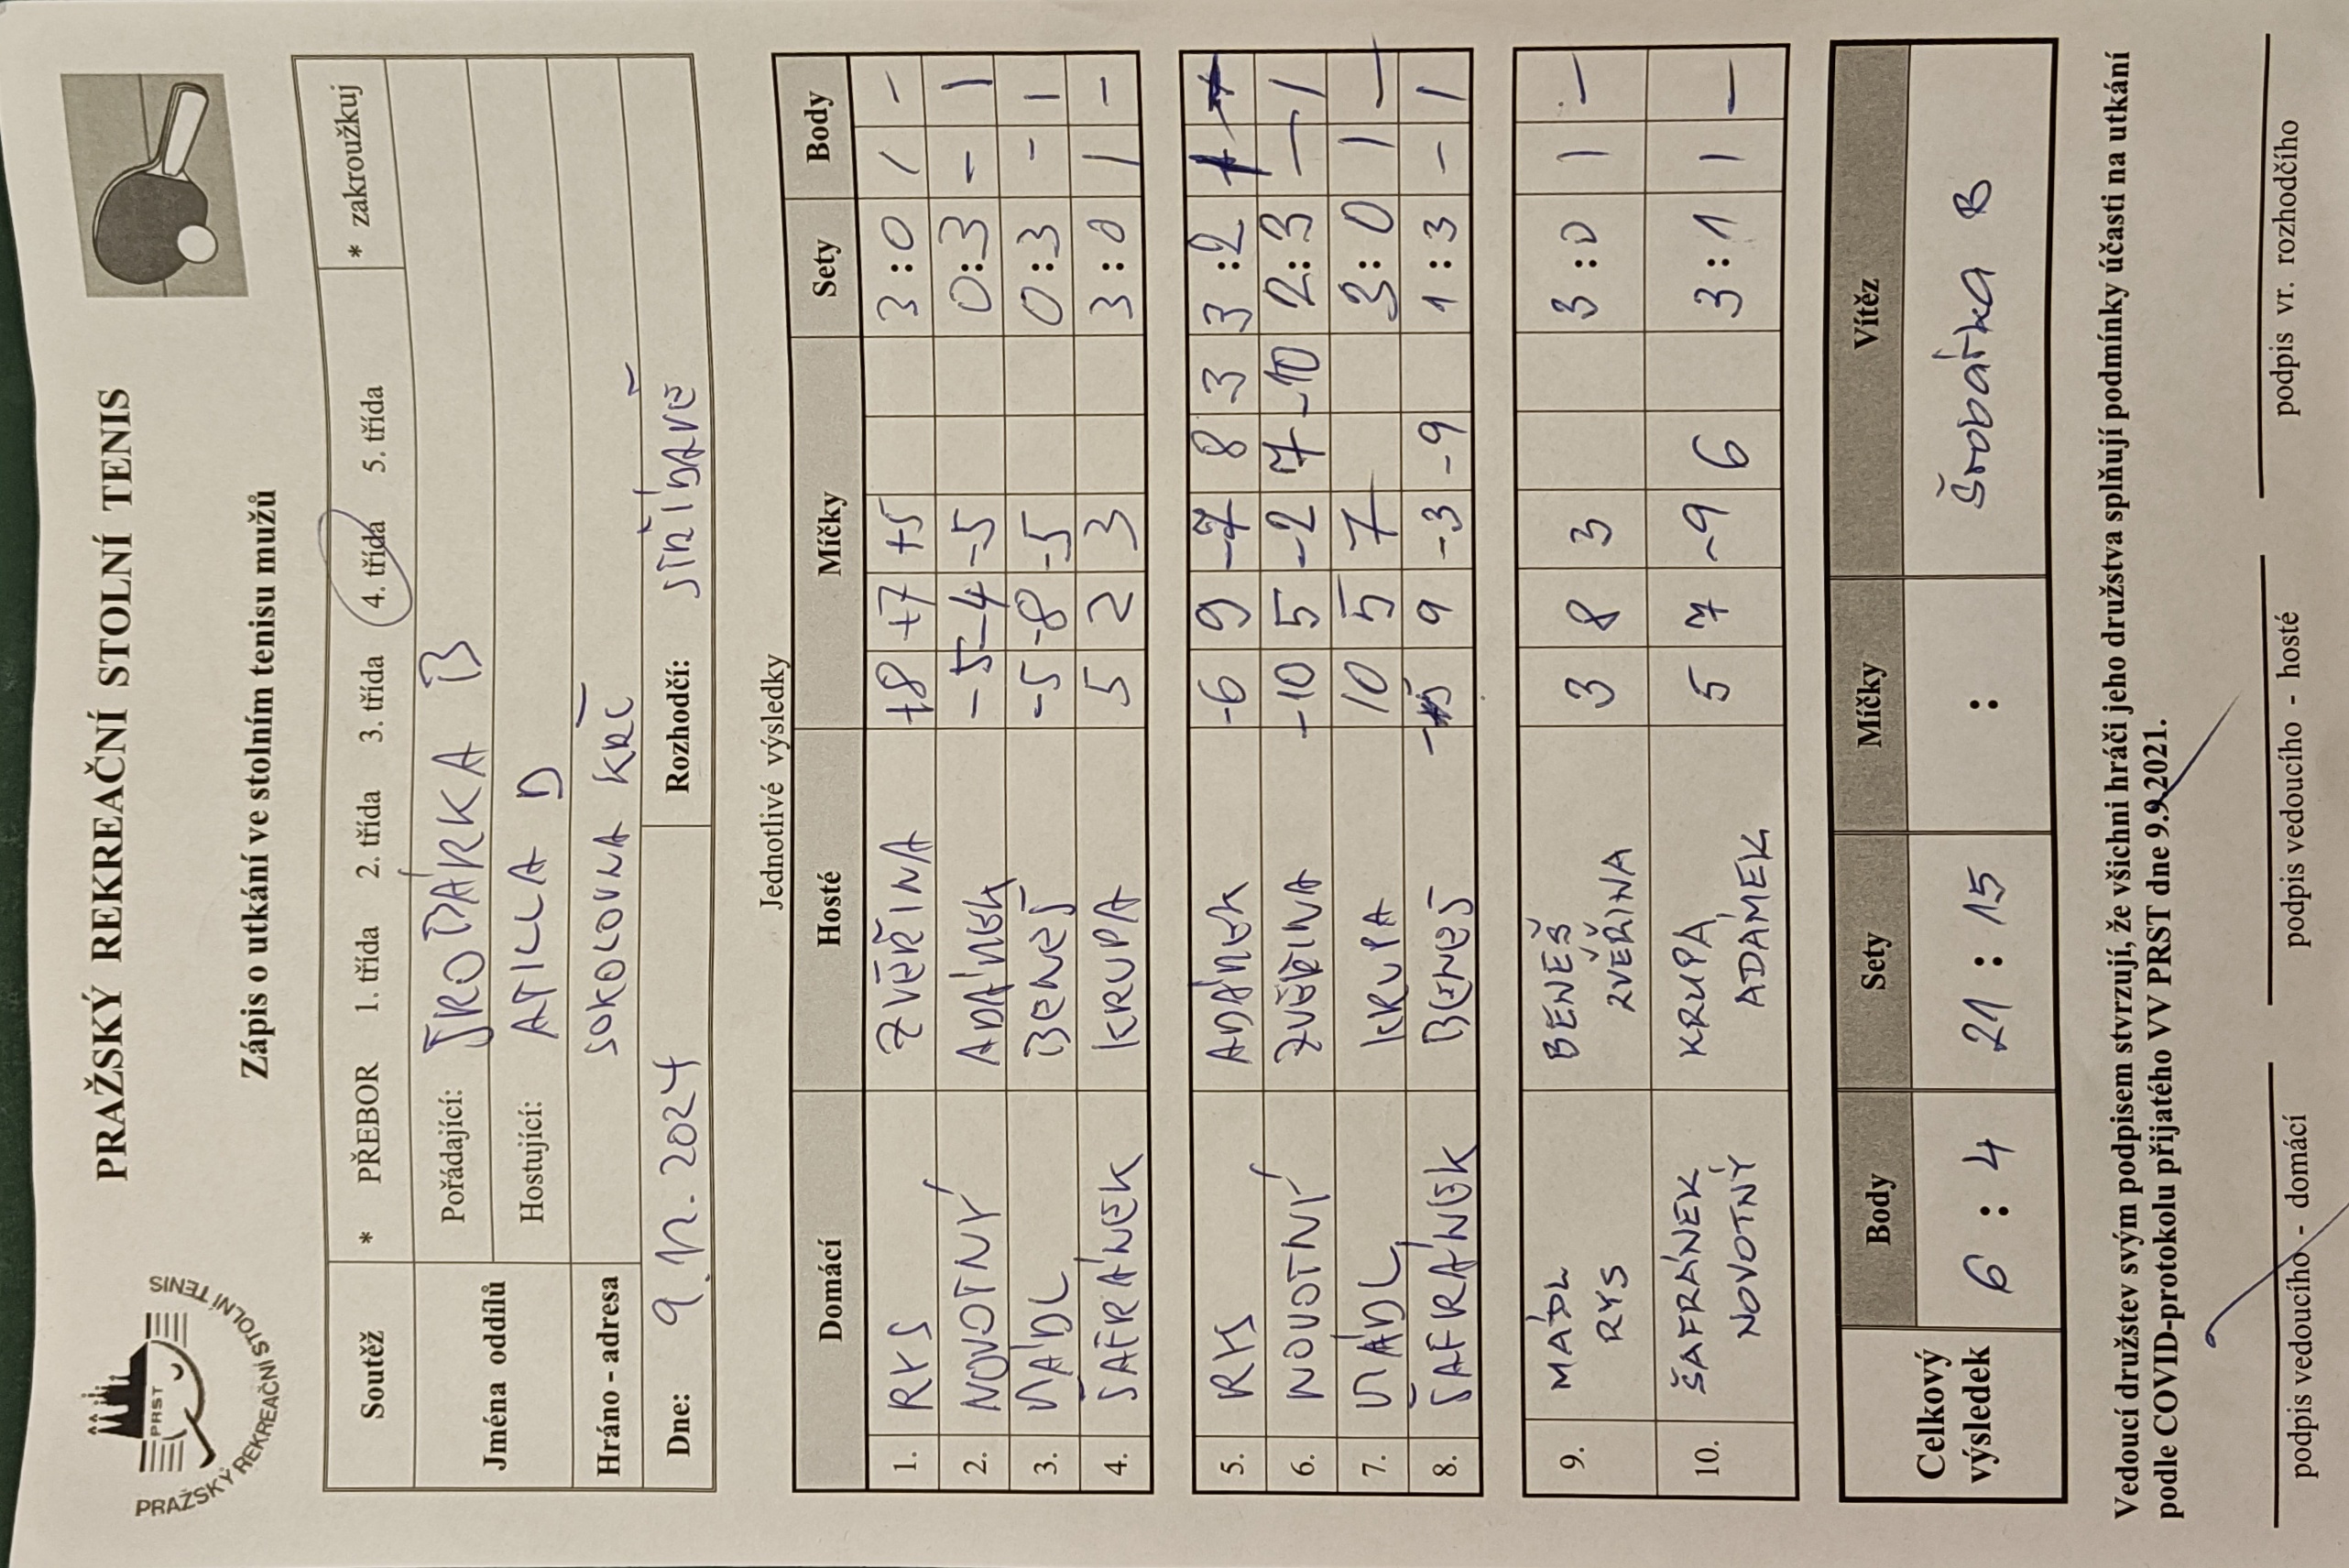 PRAŽSKÝ REKREAČNÍ STOLNÍ TENIS
PRST
PRAŽSKÝ REKREAČNÍ STOLNÍ TENIS
Zápis o utkání ve stolním tenisu mužů
Soutěž * PŘEBOR 1. třída 2. třída 3. třída 4. třída 5. třída * zakroužkuj
Jména oddílů Pořádající: ŠROBÁRKA B
Hostující: ATILLA D
Hráno - adresa SOKOLOVNA KRČ
Dne: 9.12.2024 Rozhodčí: STŘÍDAVĚ
Jednotlivé výsledky
Domácí Hosté Míčky Sety Body
1. RYS ZVĚŘINA +8 +7 +5 3:0 1 -
2. NOVOTNÝ ADÁMEK -5 -4 -5 0:3 - 1
3. MÁDL BENEŠ -5 -8 -5 0:3 - 1
4. ŠAFRÁNEK KRUPA 5 2 3 3:0 1 -
5. RYS ADÁMEK -6 9 -7 8 3 3:2 1 -
6. NOVOTNÝ ZVĚŘINA -10 5 -2 7 -10 2:3 - 1
7. MÁDL KRUPA 10 5 7 3:0 1 -
8. ŠAFRÁNEK BENEŠ -5 9 -3 -9 1:3 - 1
9. MÁDL BENEŠ 3 8 3 3:0 1 -
RYS ZVĚŘINA
10. ŠAFRÁNEK KRUPA 5 7 -9 6 3:1 1 -
NOVOTNÝ ADÁMEK
Celkový výsledek Body Sety Míčky Vítěz
6 : 4 21 : 15 : Šrobárka B
Vedoucí družstev svým podpisem stvrzují, že všichni hráči jeho družstva splňují podmínky účasti na utkání
podle COVID-protokolu přijatého VV PRST dne 9.9.2021.
podpis vedoucího - domácí podpis vedoucího - hosté podpis vr. rozhodčího